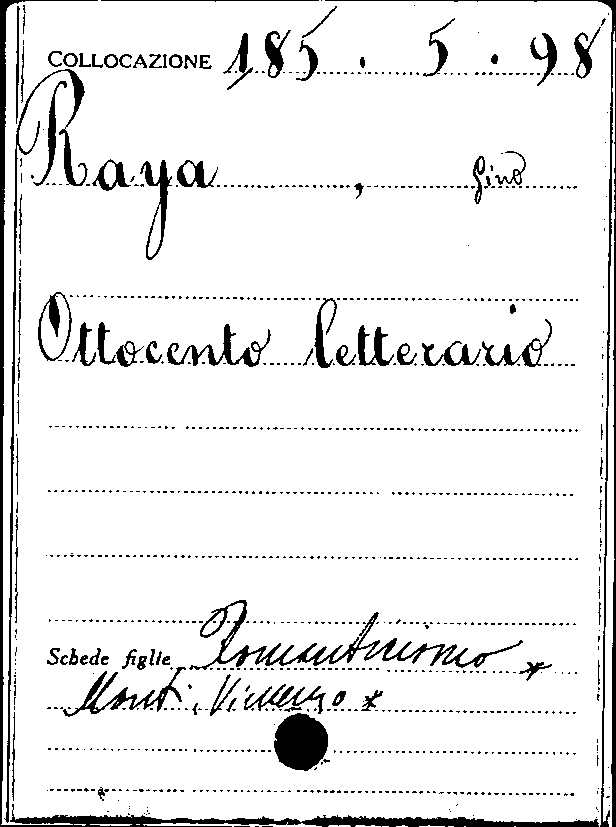 COLLOCAZIONE 185.5.98
Raya, Gino
Ottocento letterario
Schede figlie Romanticismo *
Monti, Vincenzo *